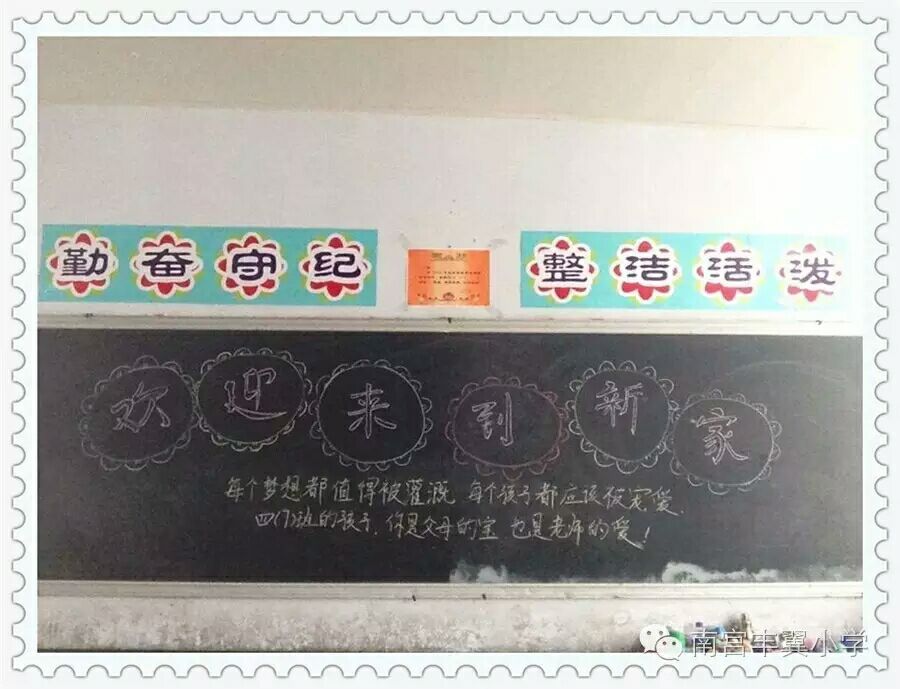 勤奋守纪
整洁活泼
欢迎来到新家
每个梦想都值得被灌溉 每个孩子都应该被宠爱.
四(7)班的孩子,你是父母的宝 也是老师的爱!
南宫丰翼小学